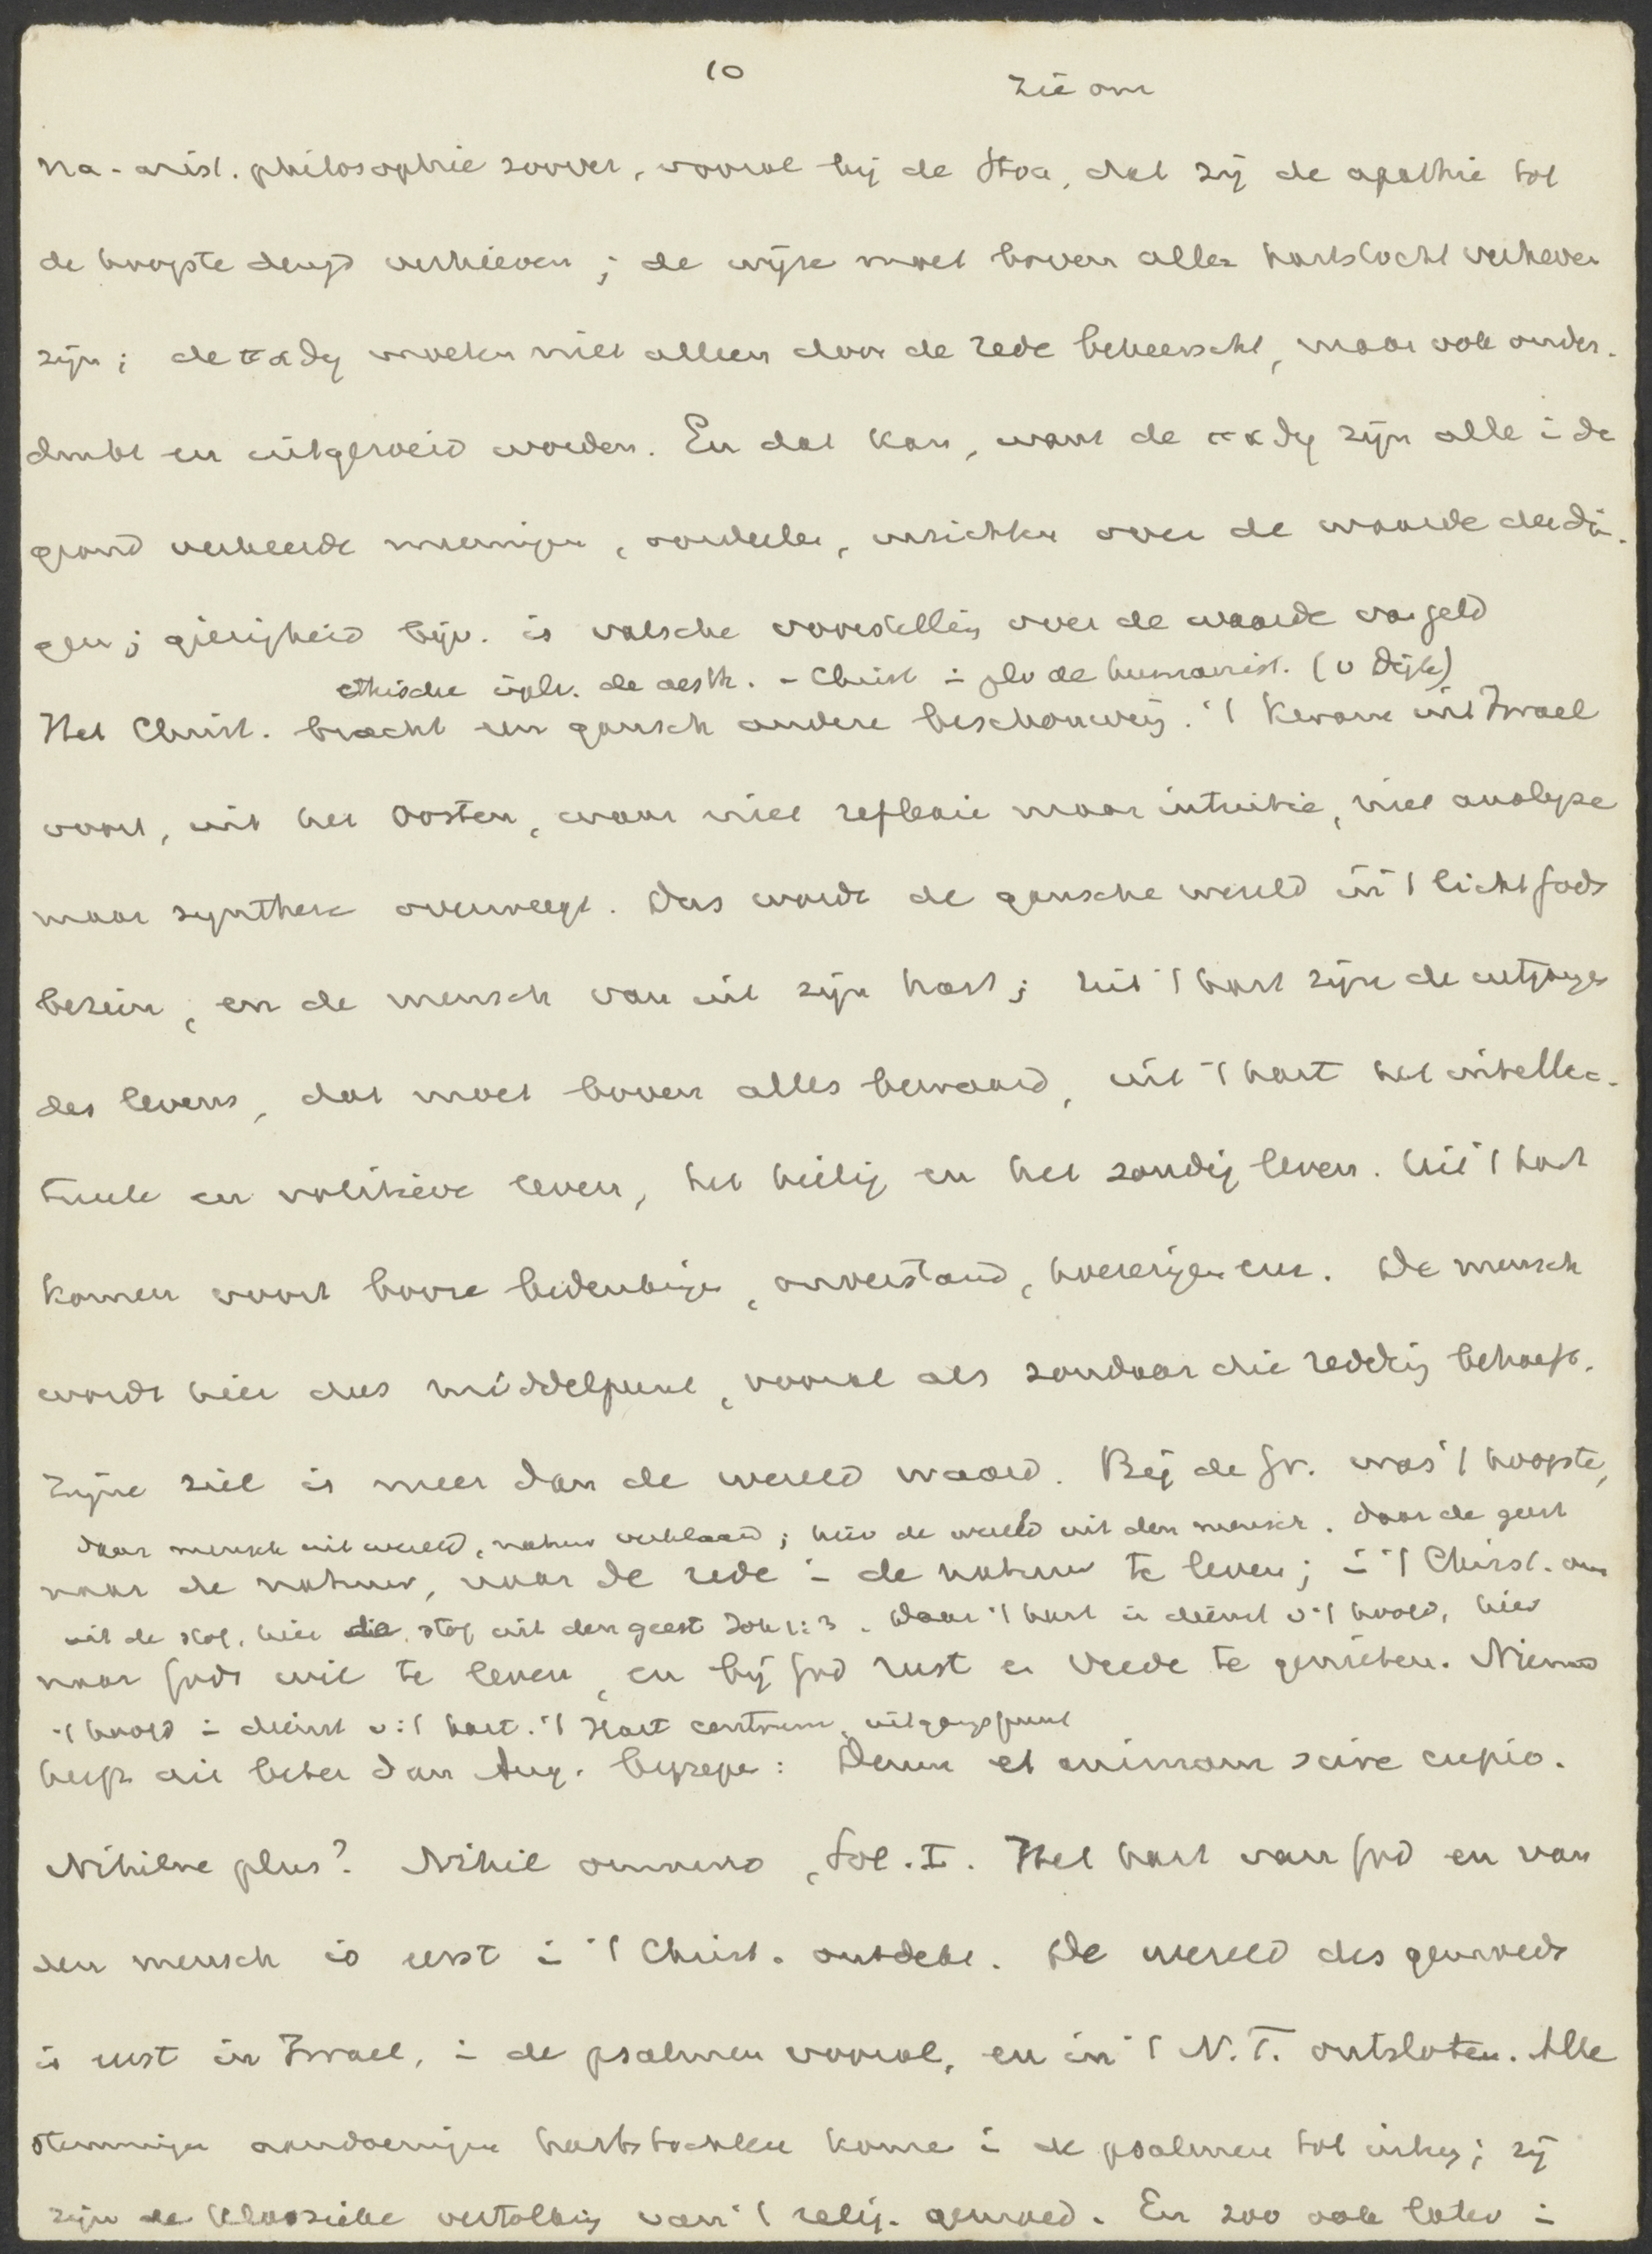 10
zie om
na-arist. philosophie zoover, vooral bij de Stoa, dat zij de apathie tot
de hoogste deugd verhieven; de wijze moet boven allen hartstocht verheven
zijn; de παθη moeten niet alleen door de rede beheerscht, maar ook onder-
drukt en uitgeroeid worden. En dat kan, want de παθη zijn alle i de
grond verkeerde meeningen, oordeelen, inzichten over de waarde der din-
gen; gierigheid bijv. is valsche voorstelling over de waarde van geld
ethische i.pl.v. de aesth. - Christ i pl v de humanist. (v Dijk)
Het Christ. bracht een gansch andere beschouwing. 't Kwam uit Israel
voort, uit het Oosten, waar niet reflexie maar intuitie, niet analyse
maar synthese overweegt. Dus wordt de gansche wereld in 't licht Gods
bezien, en de mensch van uit zijn hart; uit 't hart zijn de uitgangen
des levens, dat moet boven alles bewaard, uit 't hart het intellec-
tueele en volitieve leven, het heilig en het zondig leven. Uit 't hart
komen voort booze bedenkingen, onverstand, hoererijen enz. De mensch
wordt hier dus middelpunt, vooral als zondaar die redding behoeft.
Zijne ziel is meer dan de wereld waard. Bij de Gr. was 't hoogste,
daar mensch uit wereld, natuur verklaard; hier de wereld uit den mensch. Daar de geest
naar de natuur, naar de rede i de natuur te leven; i 't Christ. om
uit de stof, hier die stof uit den geest Joh 1:3. Daar 't hart in dienst v 't hoofd, hier
naar Gods wil te leven, en bij God rust en vrede te genieten. Niemand
't hoofd i dienst v 't hart. 't Hart centrum, uitgangspunt
heeft dit beter dan Aug. begrepen: Deum et animam scire cupio.
Nihilne plus? Nihil omnino, Sol. I. Het hart van God en van
den mensch is eerst i 't Christ. ontdekt. De wereld des gemoeds
is eerst in Israel, i de psalmen vooral, en in 't N.T. ontsloten. Alle
stemmingen aandoeningen hartstochten komen i de psalmen tot uiting; zij
zijn de klassieke vertolking van 't relig. gemoed. En zoo ook later i